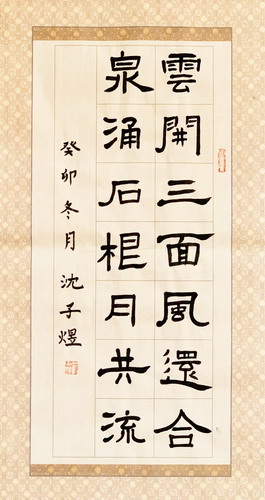 雲開三面風還合
泉涌石根月共流
癸卯冬月沈子煜